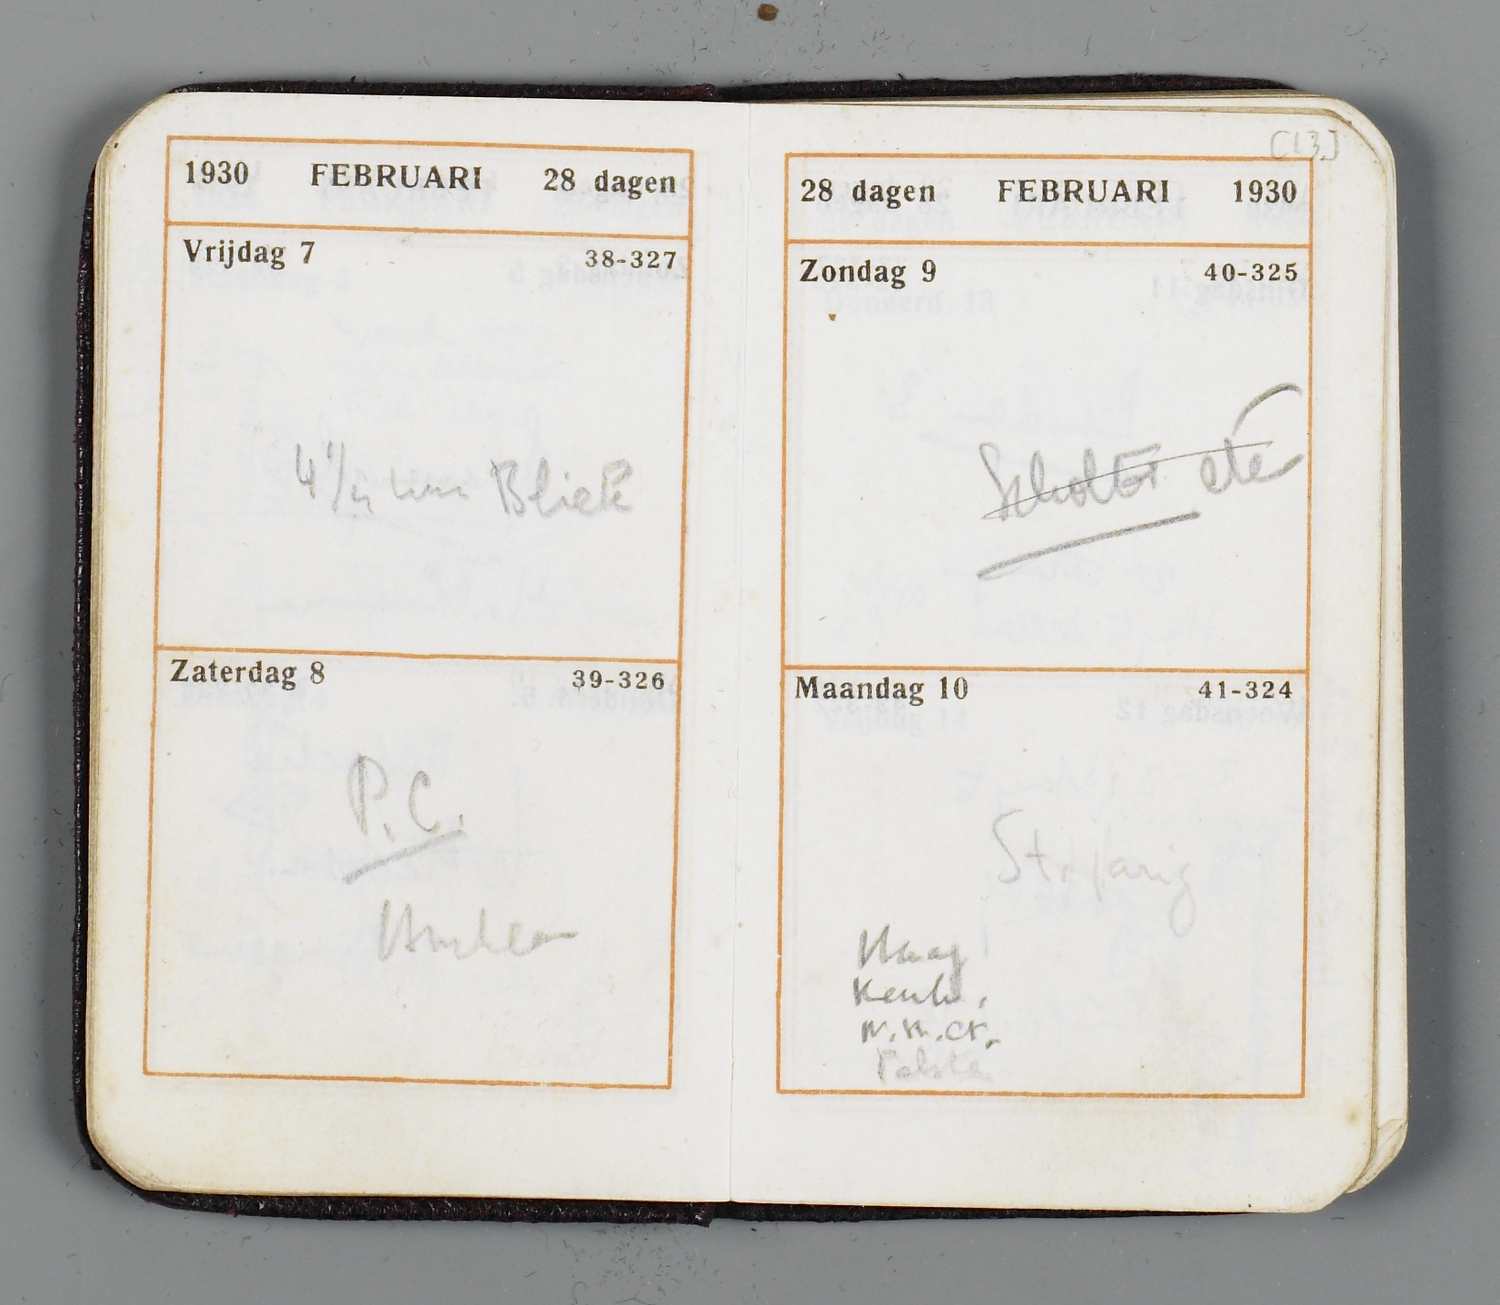 1930 FEBRUARI 28 dagen
Vrijdag 7 38-327
4 1/2 uur Bliek
Zaterdag 8 39-326
P.C.
[13]
28 dagen FEBRUARI 1930
Zondag 9 40-325
Scholte ete
Maandag 10 41-324
St. jarig
Haag
N.R.Ct.